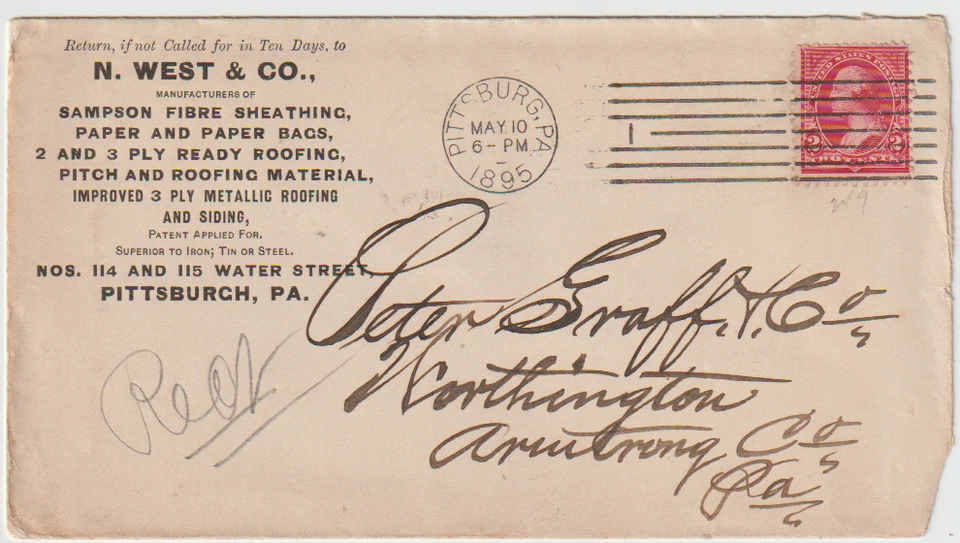 Return, if not Called for in Ten Days, to
N. WEST & CO.,
MANUFACTURERS OF
SAMPSON FIBRE SHEATHING,
PAPER AND PAPER BAGS,
2 AND 3 PLY READY ROOFING,
PITCH AND ROOFING MATERIAL,
IMPROVED 3 PLY METALLIC ROOFING
AND SIDING,
PATENT APPLIED FOR.
SUPERIOR TO IRON; TIN OR STEEL.
NOS. 114 AND 115 WATER STREET,
PITTSBURGH, PA.
PITTSBURG, PA
MAY 10
6-PM
1895
1
UNITED STATES POSTAGE
2 2
TWO CENTS
Peter Graff & Co
Worthington
Armstrong Co
Pa